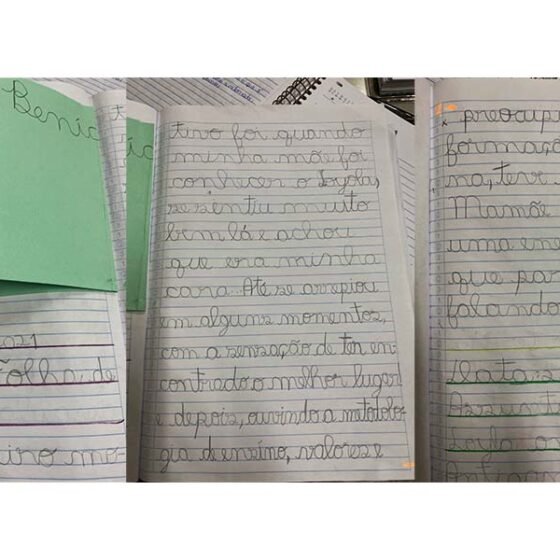 Benic
021
Folha de
iro mo-
tivo foi quando
minha mãe foi
conhecer o Loyola,
se sentiu muito
bem lá e achou
que era minha
cara. Até se arrepiou
em alguns momentos,
com a sensação de ter en-
contrado o melhor lugar
e depois, ouvindo a metodolo-
gia de ensino, valores e
preocupa
formaçã
na, teve
Mamãe
uma en
que
falando
Data:
Assunt